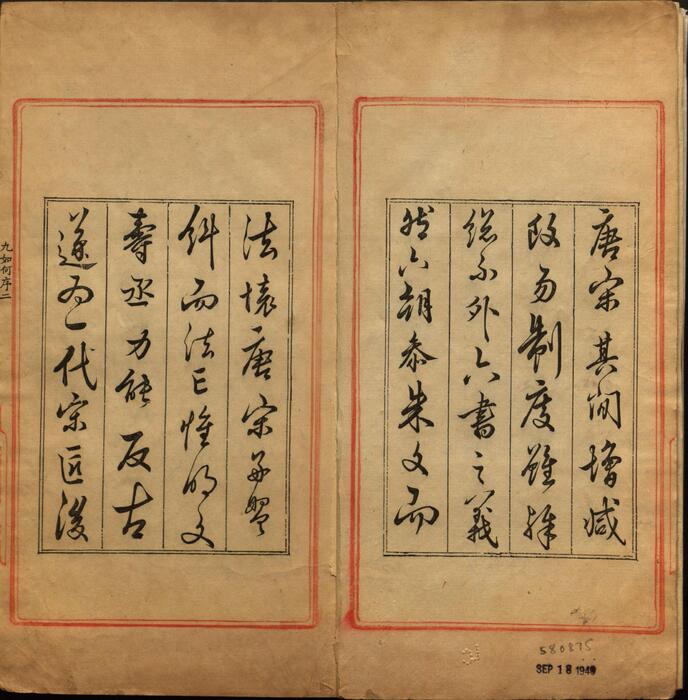 唐宋其間增減
改易制度雖殊
總不外六書之義
然六朝參朱文而
法壞唐宋盤
斜而法亡惟明文
壽丞力能反古
遂為一代宗匠後
九如何序二
580875
SEP 18